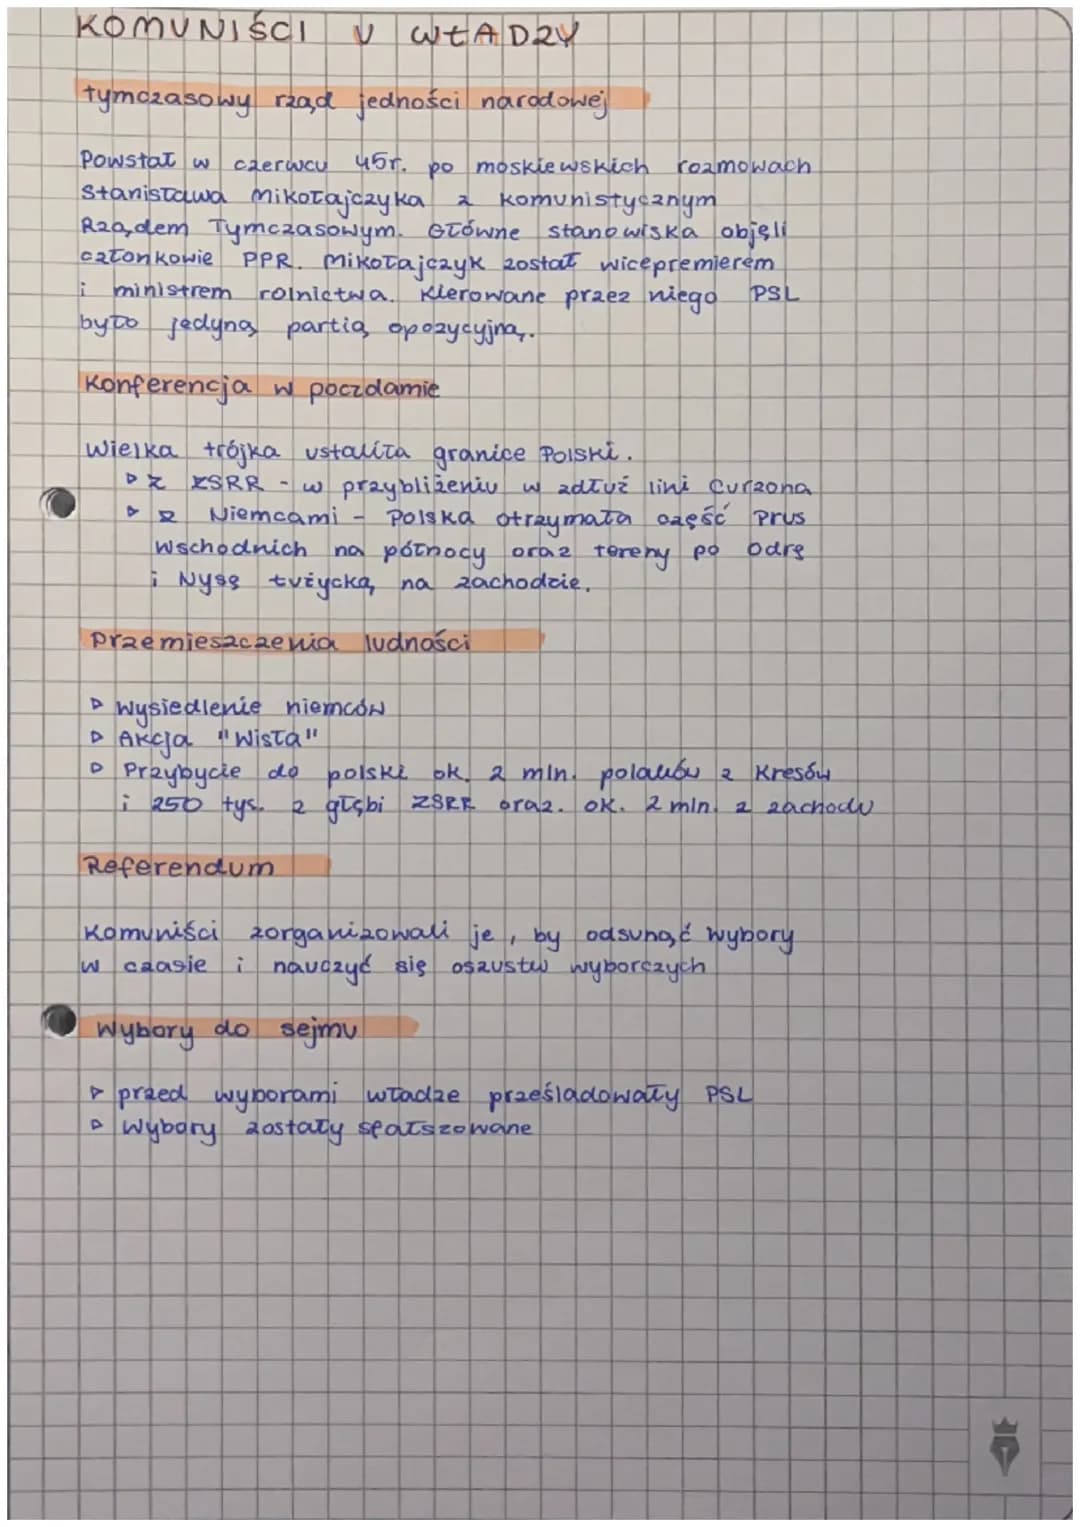 KOMUNIŚCI U WŁADZY
tymczasowy rząd jedności narodowej
Powstał w czerwcu 45r. po moskiewskich rozmowach
Stanisława Mikołajczyka z komunistycznym
Rządem Tymczasowym. Główne stanowiska objęli
członkowie PPR. Mikołajczyk został wicepremierem
i ministrem rolnictwa. Kierowane przez niego PSL
było jedyną partią opozycyjną.
Konferencja w poczdamie
Wielka trójka ustaliła granice Polski.
▷ Z ZSRR - w przybliżeniu w zdłuż lini Curzona
▷ z Niemcami - Polska otrzymała część Prus
Wschodnich na północy oraz tereny po Odrę
i Nysę Łużycką na zachodzie.
Przemieszczenia ludności
▷ Wysiedlenie niemców
▷ Akcja "Wisła"
▷ Przybycie do polski ok. 2 mln. polaków z Kresów
i 250 tys. z głębi ZSRR oraz. ok. 2 mln. z zachodu
Referendum
Komuniści zorganizowali je, by odsunąć wybory
w czasie i nauczyć się oszustw wyborczych
Wybory do sejmu
▷ przed wyborami władze prześladowały PSL
▷ Wybory zostały sfałszowane